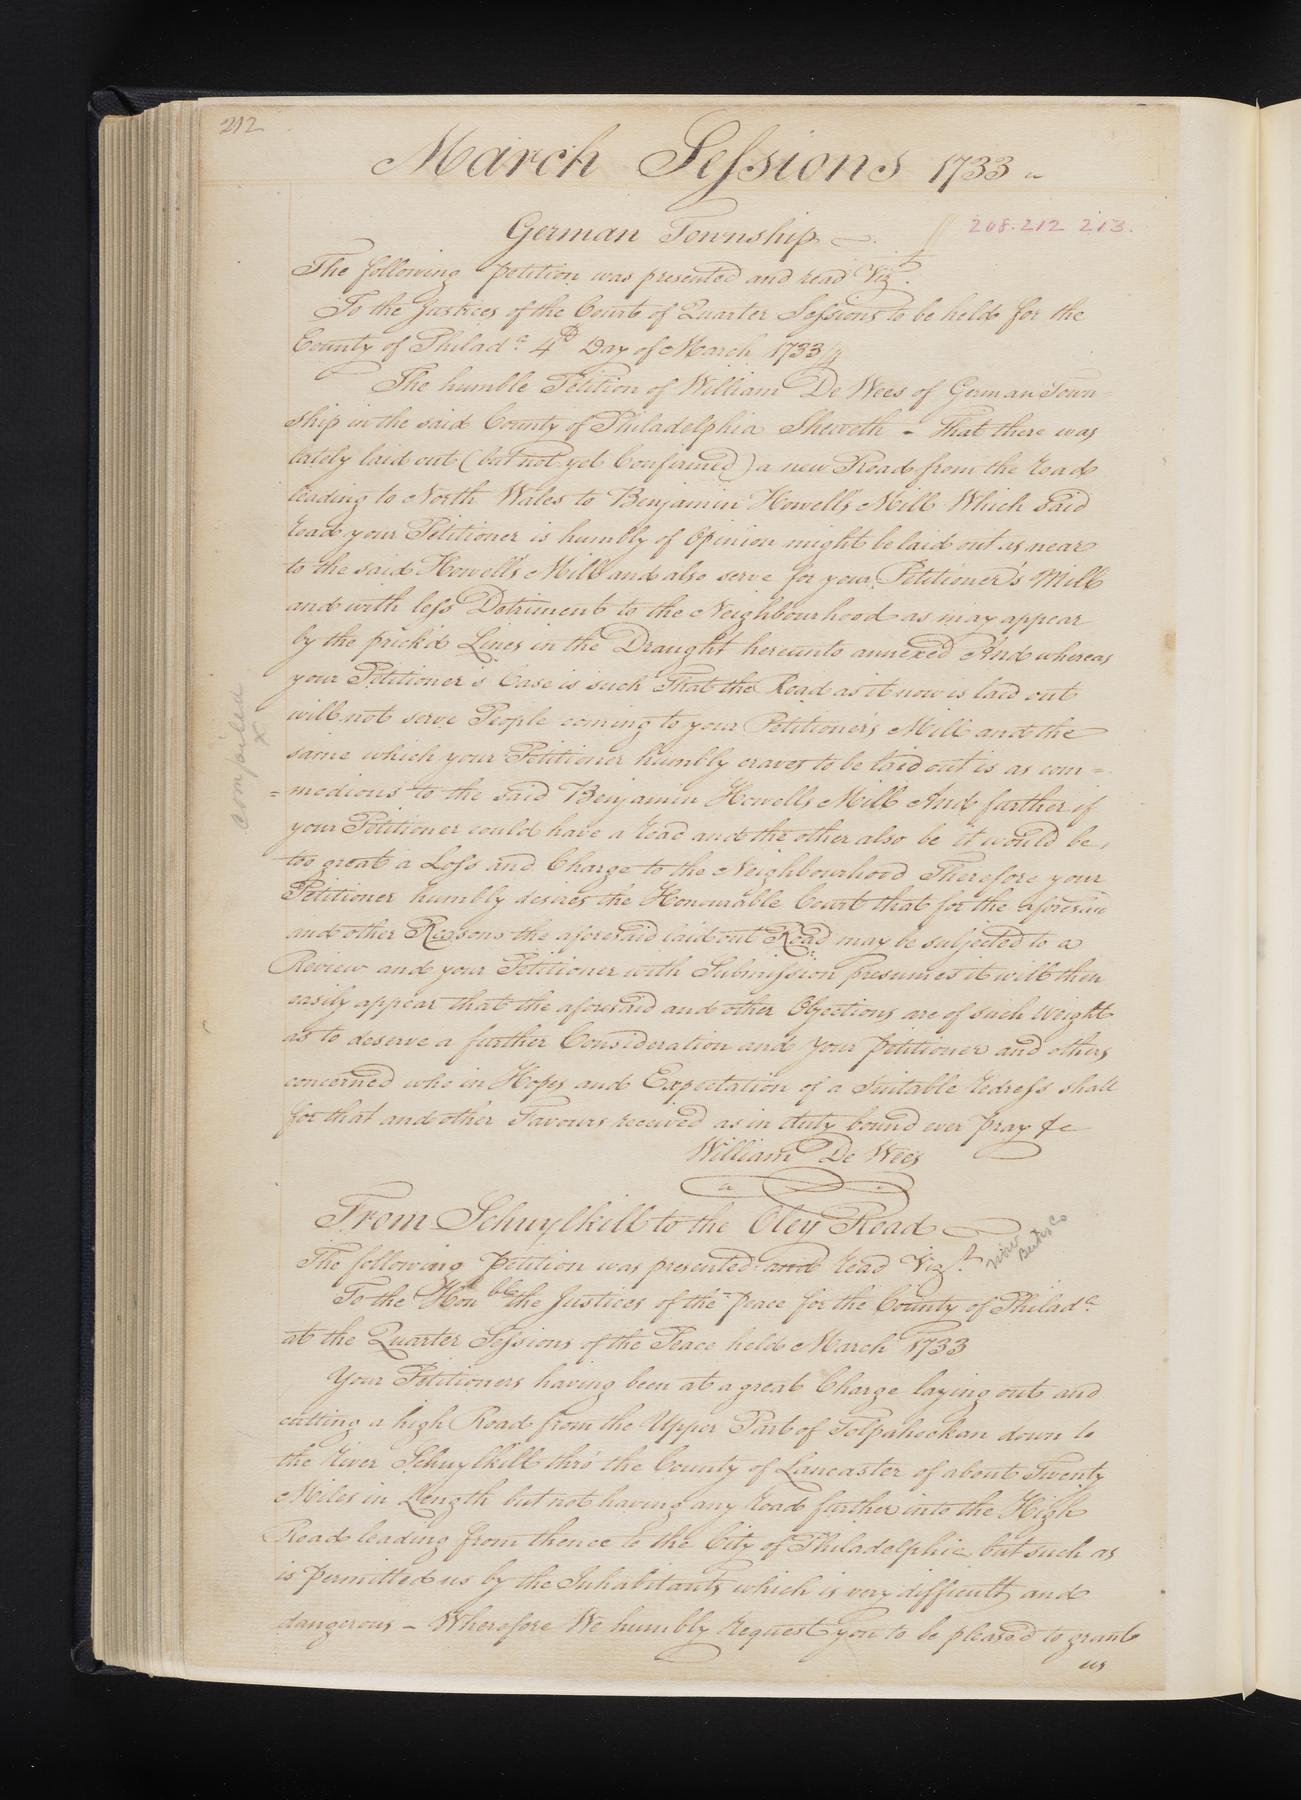 212
March Sessions 1733
German Township
208. 212 213.
The following petition was presented and read Vizt.
To the Justices of the Court of Quarter Sessions to be held for the
County of Philada. 4th Day of March 1733/4
The humble Petition of William De Wees of German Town=
ship in the said County of Philadelphia Sheweth - That there was
lately laid out (but not yet Confirmed) a new Road from the Road
leading to North Wales to Benjamin Howells Mill Which said
road your Petitioner is humbly of Opinion might be laid out as near
to the said Howell's Mill and also serve for your Petitioner's Mill
and with less Detriment to the Neighbourhood as may appear
by the prick'd Lines in the Draught hereunto annexed And whereas
your Petitioner's Case is such That the Road as it now is laid out
will not serve People coming to your Petitioner's Mill and the
same which your Petitioner humbly craves to be laid out is as com=
=medious to the said Benjamin Howells Mill And further if
your Petitioner could have a road and the other also be it would be
too great a Loss and Charge to the Neighbourhood Therefore your
Petitioner humbly desires the Honourable Court that for the aforesaid
and other Reasons the aforesaid laid out Road may be subjected to a
Review and your Petitioner with Submission presumes it will then
easily appear that the aforesaid and other Objections are of such Weight
as to deserve a further Consideration and your petitioner and others
concerned who in Hopes and Expectation of a Suitable redress shall
for that and other Favours received as in duty bound ever pray &c
William De Wees
compiled
x
From Schuylkill to the Oley Road
now
Berks Co
The following petition was presented and read Vizt.
To the Honble the Justices of the peace for the County of Philada.
at the Quarter Sessions of the Peace held March 1733
Your Petitioners having been at a great Charge laying out and
cutting a high Road from the Upper Part of Tolpahockan down to
the river Schuylkill thro' the County of Lancaster of about Twenty
Miles in Length but not having any road further into the High
Road leading from thence to the City of Philadelphia but such as
is permitted us by the Inhabitants which is very difficult and
dangerous - Wherefore We humbly Request you to be pleased to grant
us